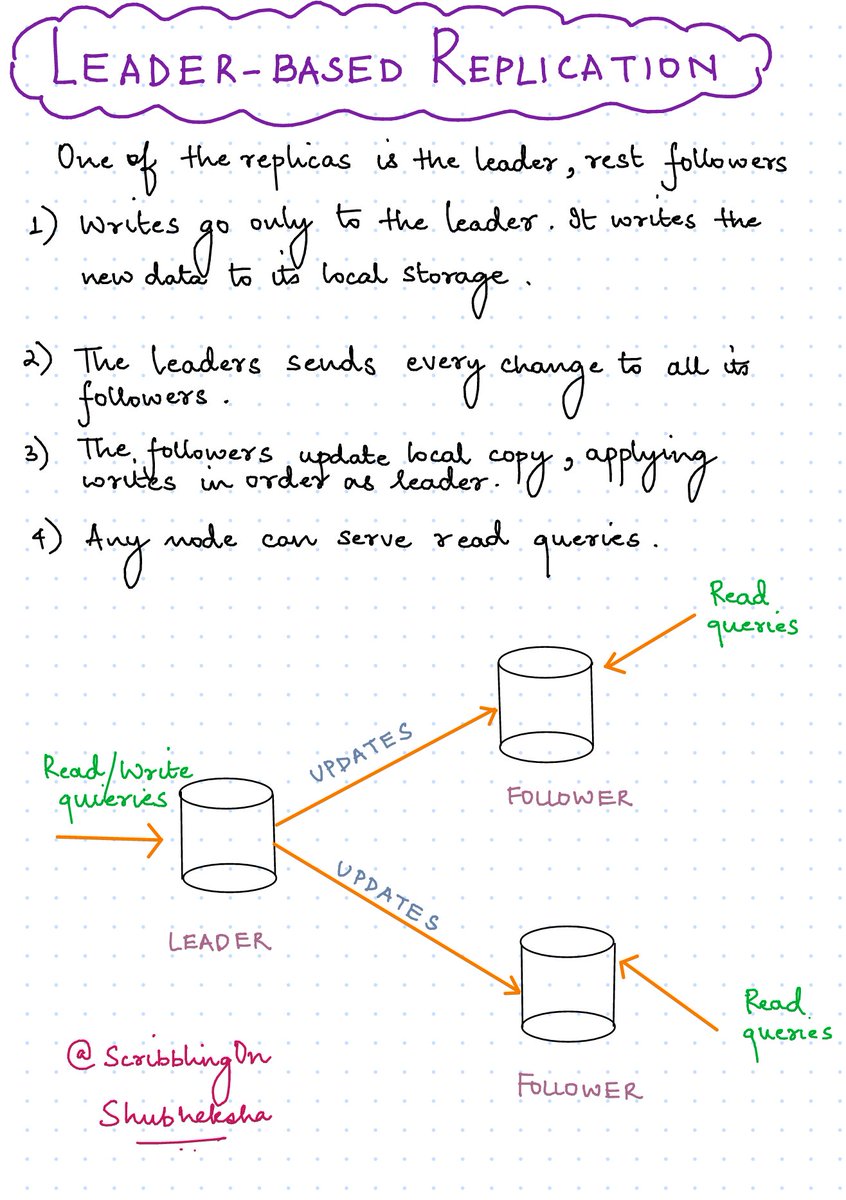 LEADER-BASED REPLICATION
One of the replicas is the leader, rest followers
1) Writes go only to the leader. It writes the
new data to its local storage.
2) The leaders sends every change to all its
followers.
3) The followers update local copy, applying
writes in order as leader.
4) Any node can serve read queries.
Read
queries
UPDATES
Read/Write
quieries
FOLLOWER
UPDATES
LEADER
Read
queries
FOLLOWER
@ScribblingOn
Shubheksha